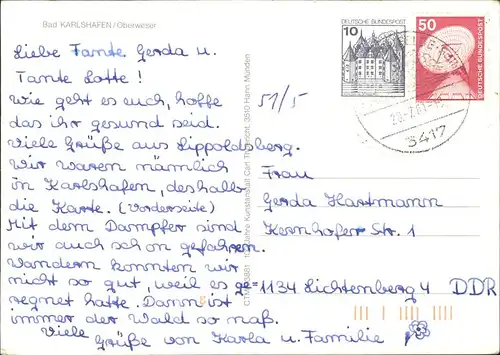 Bad KARLSHAFEN / Oberweser
Liebe Tante Gerda u.
Tante Lotte!
Wie geht es euch, hoffe
das ihr gesund seid.
Viele Grüße aus Lippoldsberg.
Wir waren nämlich
in Karlshafen, deshalb
die Karte. (Vorderseite)
Mit dem Dampfer sind
wir auch schon gefahren.
Wandern konnten wir
nicht so gut, weil es ge=
regnet hatte. Dann ist
immer der Wald so naß.
Viele Grüße von Karla u. Familie
51/5
Jahre Kunstanstalt Carl Thoericht, 3510 Hann Münden
10
DEUTSCHE BUNDESPOST
50
DEUTSCHE BUNDESPOST
3417
Frau
Gerda Hartmann
Kernhofer Str. 1
1134 Lichtenberg 4 DDR